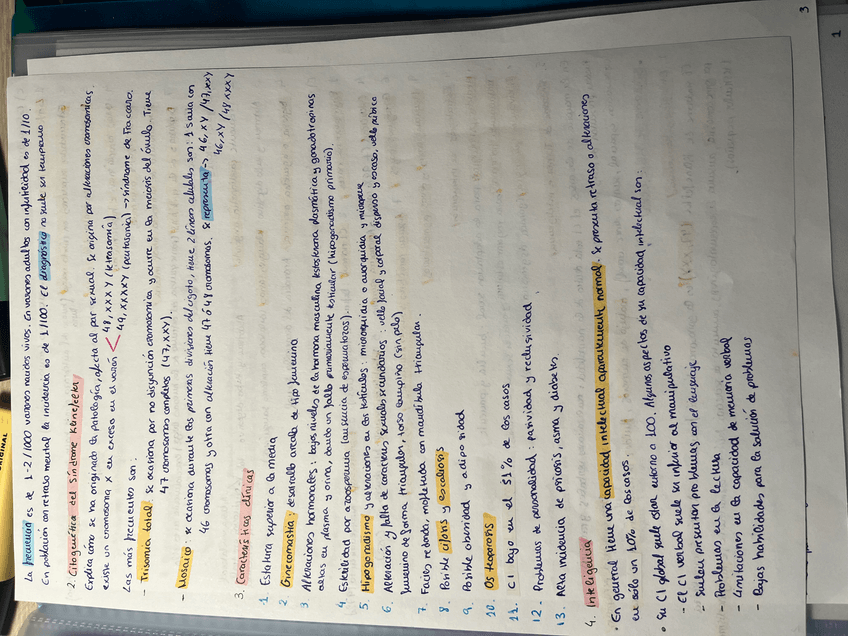 La frecuencia es de 1-2/1000 varones nacidos vivos. En varones adultos con infertilidad es de 1/10.
En población con retraso mental la incidencia es de 1/100. El diagnóstico no suele ser temprano
2. Citogenética del síndrome Klinefelter
Explica cómo se ha originado la patología, afecta al par sexual. Se origina por alteraciones cromosómicas.
existe un cromosoma X en exceso en el varón
48, XXXY (tetrasomía)
49, XXXXY (pentasomía) → síndrome de Fraccaro.
Las más frecuentes son:
- Trisomía total: se ocasiona por no disyunción cromosómica y ocurre en la mayoría del óvulo. Tiene
47 cromosomas completos (47, XXY).
- Mosaico: se ocasiona durante las primeras divisiones del cigoto, tiene 2 líneas celulares son: 1 sana con
46 cromosomas y otra con alteración tiene 47 ó 48 cromosomas. Se representa → 46, XY / 47, XXY
46, XY / 48 XXXY
3. Características clínicas
1. Estatura superior a la media
2. Ginecomastia: desarrollo areola de tipo femenino
3 Alteraciones hormonales: bajos niveles de la hormona masculina testosterona plasmática y gonadotropinas
altas en plasma y orina, debido a un fallo primariamente testicular (hipogonadismo primario).
4. Esterilidad por azoospermia (ausencia de espermatozoos).
5. Hipogonadismo y alteraciones en los testículos: microrquidia o anorquidia y micropene
6. Alteración y falta de caracteres sexuales secundarios: vello facial y corporal disperso y escaso, vello púbico
femenino de forma triangular, torso lampiño (sin pelo)
7. Facies redonda, mofletuda con mandíbula triangular.
8. Posible cifosis y escoliosis
9. Posible obesidad y adiposidad
10. Osteoporosis
11. CI bajo en el 51% de los casos
12. Problemas de personalidad: pasividad y reclusividad
13. Alta incidencia de psicosis, asma y diabetes.
4. Inteligencia
• En general tiene una capacidad intelectual aparentemente normal. Se presenta retraso o alteraciones
en sólo un 10% de los casos.
• Su CI global suele estar entorno a 100. Algunos aspectos de su capacidad intelectual son:
- El CI verbal suele ser inferior al manipulativo
- Suelen presentar problemas con el lenguaje
- Problemas en la lectura
- Limitaciones en la capacidad de memoria verbal
- Bajas habilidades para la solución de problemas
3
1
ORIGINAL